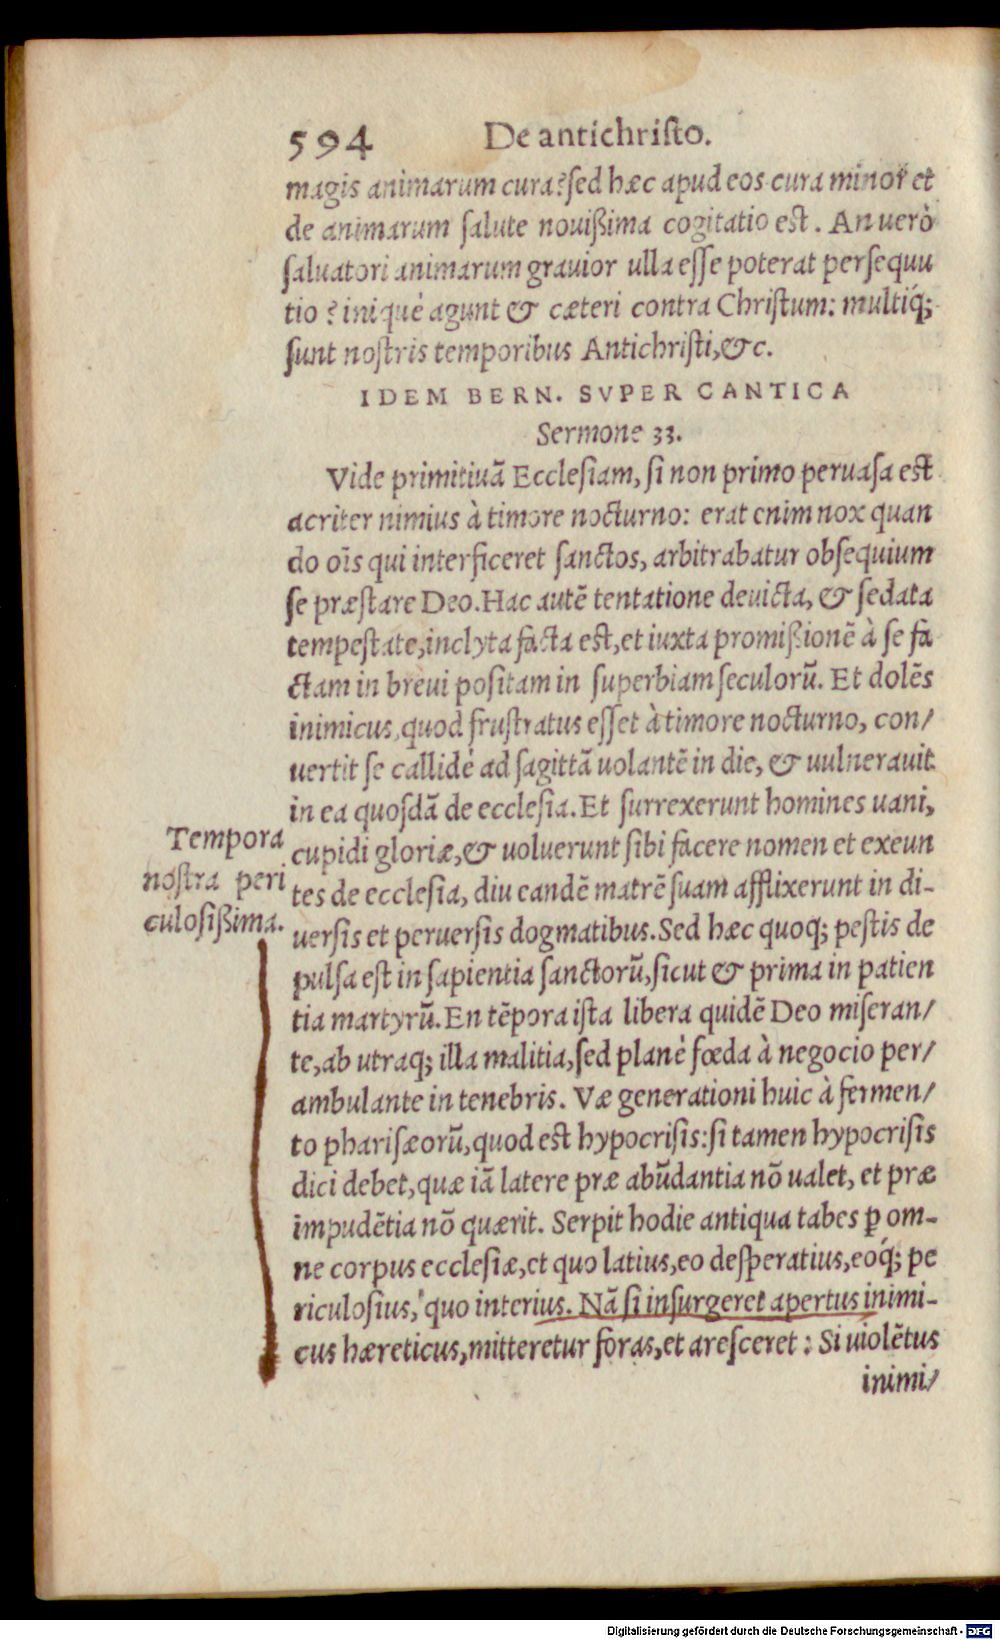 594 De antichriſto.
magis animarum cura? ſed hæc apud eos cura minor et
de animarum ſalute nouiſſima cogitatio est. An uerò
ſaluatori animarum grauior ulla eſſe poterat perſequu
tio? iniquè agunt & cæteri contra Chriſtum: multiq́;
ſunt noſtris temporibus Antichriſti, &c.
IDEM BERN. SVPER CANTICA
Sermone 33.
Vide primitiuā Eccleſiam, ſi non primo peruaſa est
acriter nimius à timore nocturno: erat enim nox quan
do oīs qui interficeret ſanctos, arbitrabatur obſequium
ſe præſtare Deo. Hac autē tentatione deuicta, & ſedata
tempeſtate, inclyta facta est, et iuxta promiſſionē à ſe fa
ctam in breui poſitam in ſuperbiam ſeculorū. Et dolēs
inimicus, quod fruſtratus eſſet à timore nocturno, con/
uertit ſe callidè ad ſagittā uolantē in die, & uulnerauit
in ea quoſdā de eccleſia. Et ſurrexerunt homines uani,
cupidi gloriæ, & uoluerunt ſibi facere nomen et exeun
tes de eccleſia, diu eandē matrē ſuam afflixerunt in di-
uerſis et peruerſis dogmatibus. Sed hæc quoq; peſtis de
pulſa eſt in ſapientia ſanctorū, ſicut & prima in patien
tia martyrū. En tēpora iſta libera quidē Deo miſeran/
te, ab utraq; illa malitia, ſed planè fœda à negocio per/
ambulante in tenebris. Væ generationi huic à fermen/
to phariſæorū, quod est hypocriſis: ſi tamen hypocriſis
dici debet, quæ iā latere præ abūdantia nō ualet, et præ
impudētia nō quærit. Serpit hodie antiqua tabes ꝑ om-
ne corpus eccleſiæ, et quo latius, eo deſperatius, eoq́; pe
riculoſius, quo interius. Nā ſi inſurgeret apertus inimi-
cus hæreticus, mitteretur foras, et areſceret: Si uiolētus
inimi/
Tempora
noſtra peri
culoſiſſima.
Digitalisierung gefördert durch die Deutsche Forschungsgemeinschaft - DFG